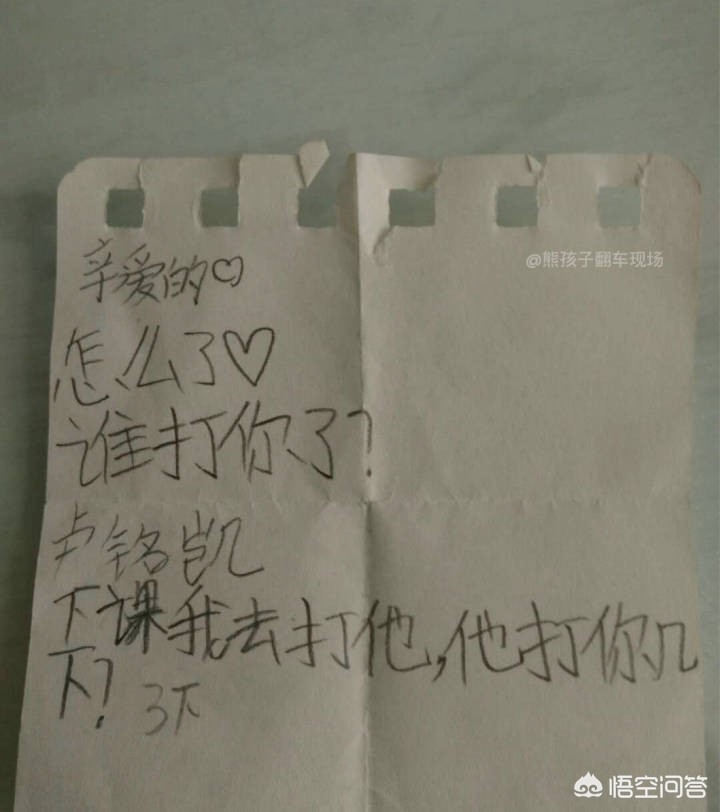 亲爱的♡
@熊孩子翻车现场
怎么了♡
谁打你了？
卢铭凯
下课我去打他,他打你几
下？ 3下
悟空问答